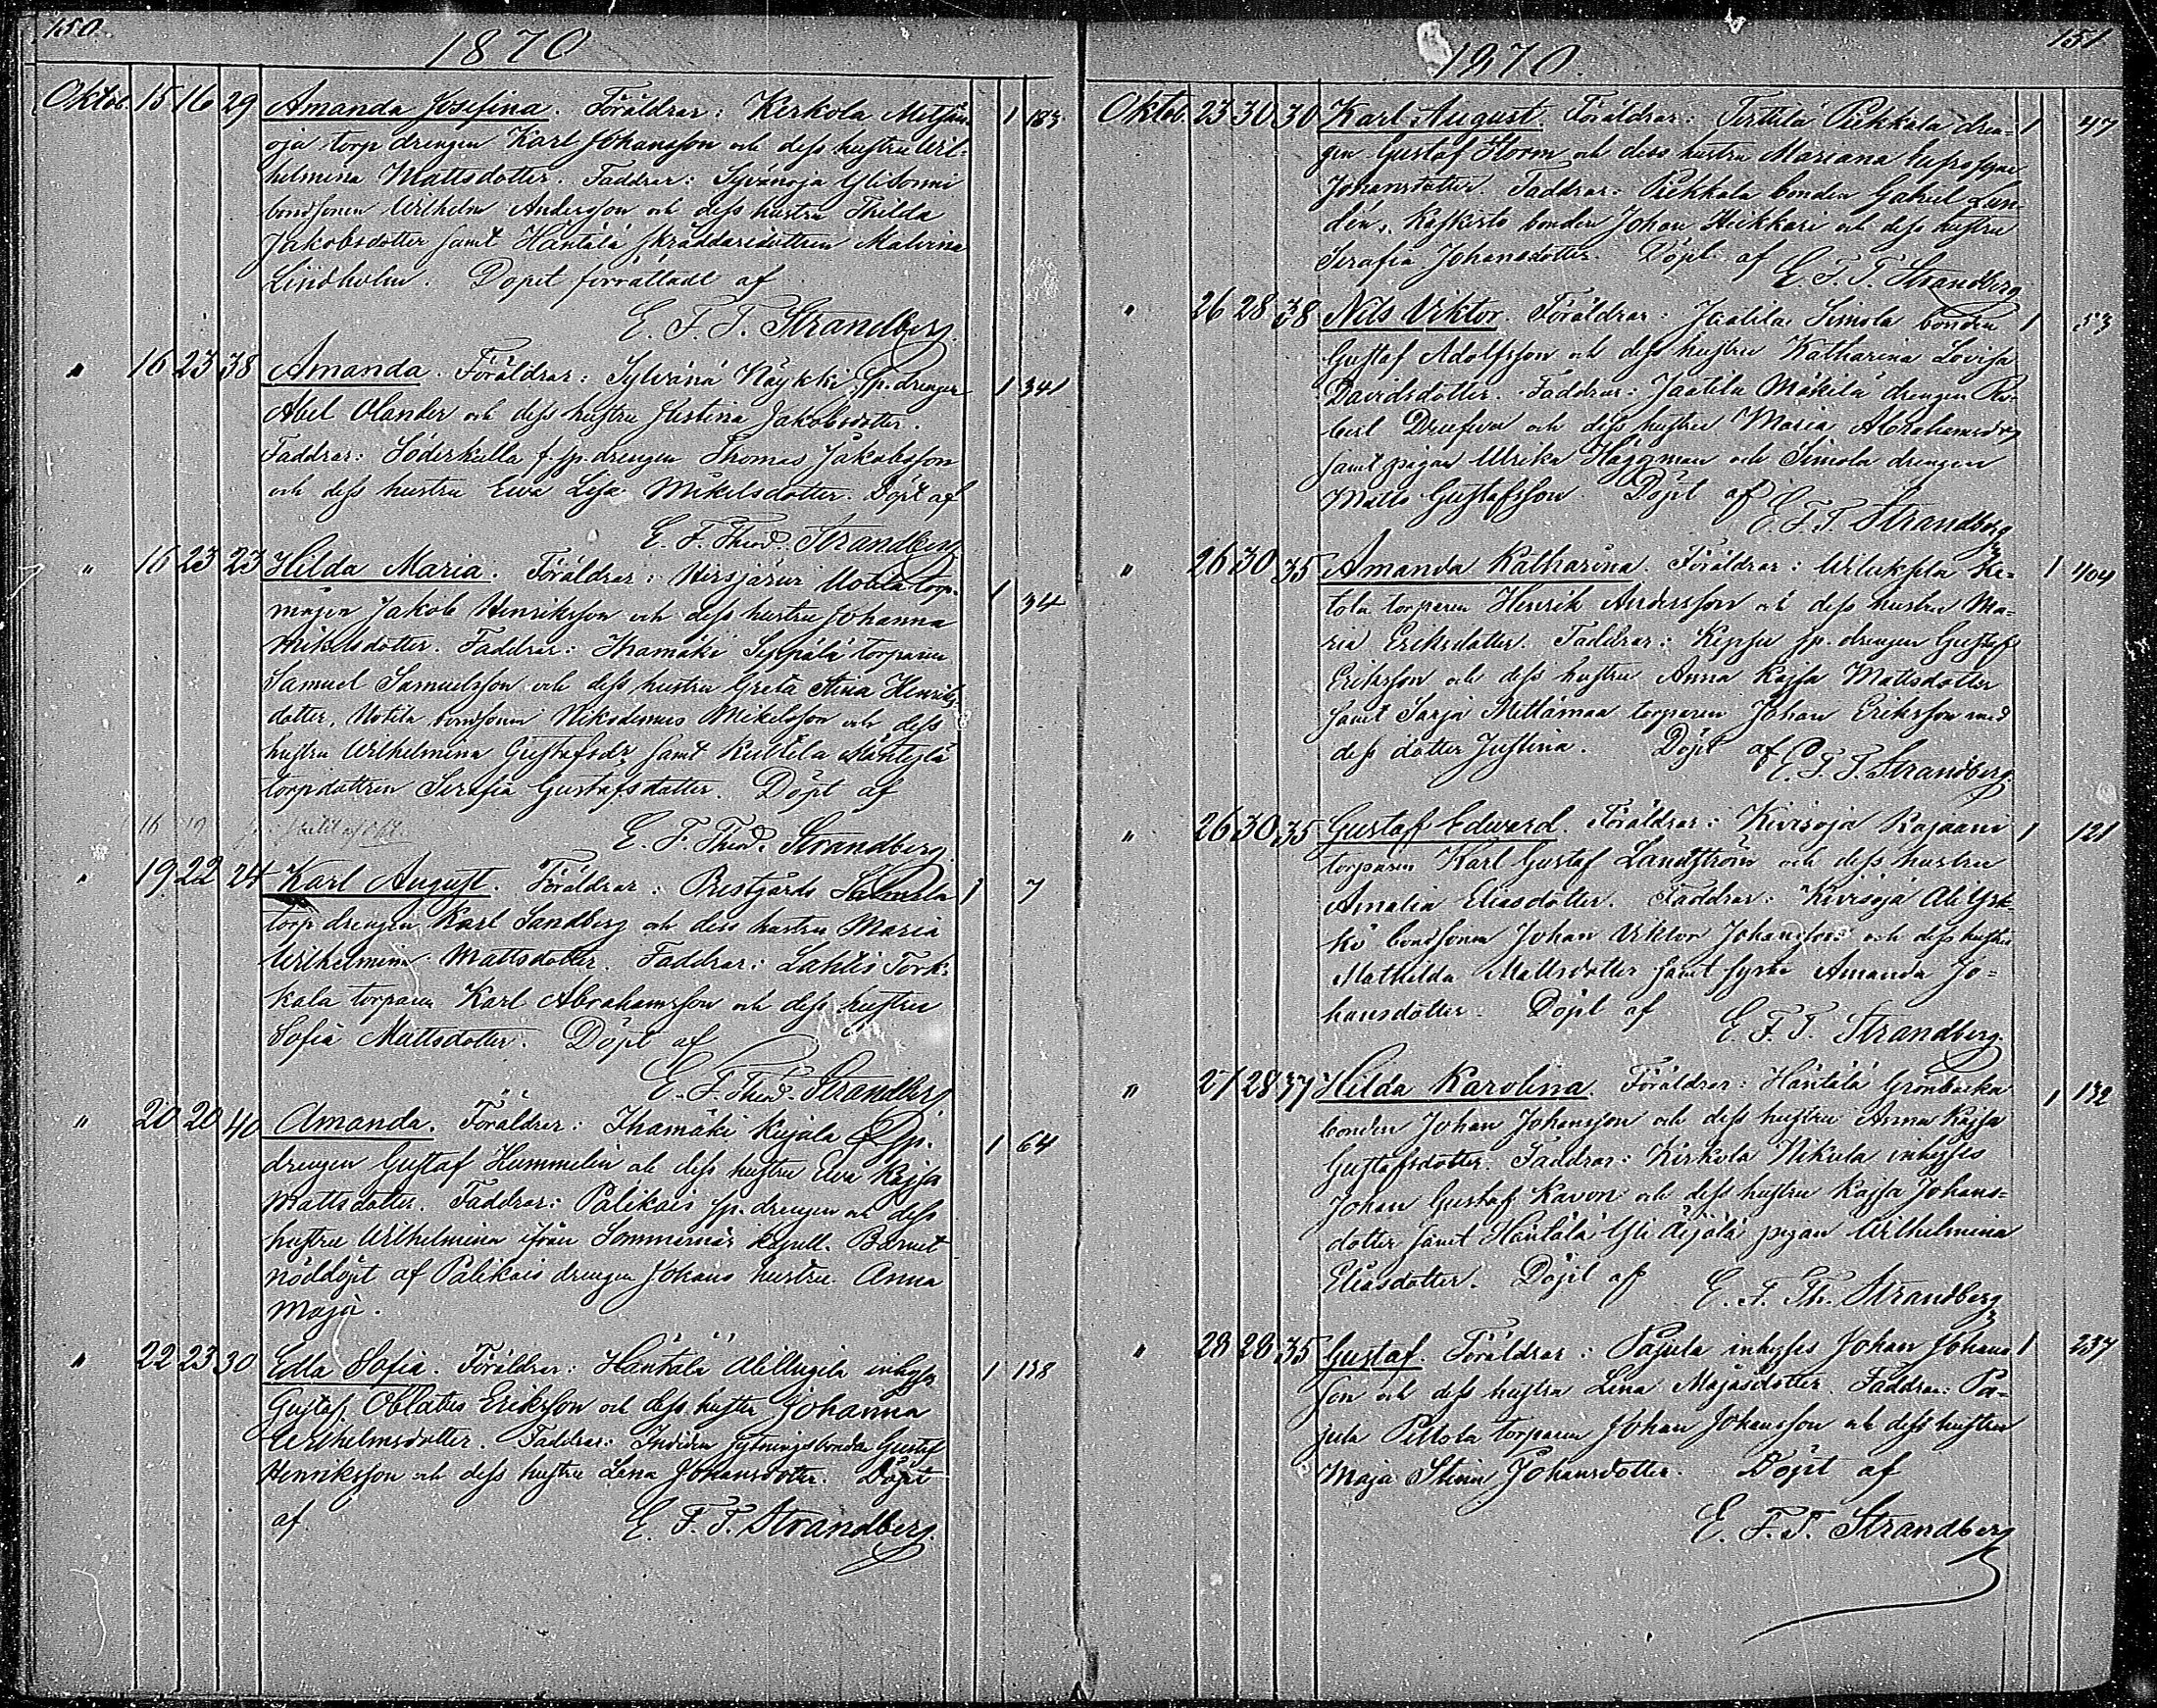 150.
1870
Oktob. 15 16 29 Amanda Josefina. Föräldrar: Kerkola Metsän-
oja torp drengen Karl Johansson och dess hustru Wil- 1 183
helmina Mattsdotter. Faddrar: Sylvänoja Ylisonni
bondsonen Wilhelm Andersson och dess hustru Thilda
Jakobsdotter samt Häntälä skräddaredottren Malvina
Lindholm. Dopet förrättadt af
E. F. T. Strandberg.
" 16 23 38 Amanda. Föräldrar: Sylvänä Näykki sp. drengen 1 341
Abel Olander och dess hustru Justina Jakobsdotter.
Faddrar: Söderkulla f. sp. drengen Thomas Jakobsson
och dess hustru Ewa Lisa Mikelsdotter. Döpt af
E. F. Theod. Strandberg
" 16 23 23 Hilda Maria. Föräldrar: Hirsjärvi Uotila torp-
mågen Jakob Henriksson och dess hustru Johanna 1 34
Mikelsdotter. Faddrar: Ihamäki Seppälä torparen
Samuel Samuelsson och dess hustru Greta Stina Henriks-
dotter, Uotila bondsonen Nikodemus Mikelsson och dess
hustru Wilhelmina Gustafsdr samt Kultela Mäntylä
torpdottren Serafia Gustafsdotter. Döpt af
E. F. Theod. Strandberg.
16 19
" 19 22 24 Karl August. Föräldrar: Prestgårds Salmela 1 7
torp drengen Karl Sandberg och dess hustru Maria
Wilhelmina Mattsdotter. Faddrar: Lahtis Tork-
kala torparen Karl Abrahamsson och dess hustru
Sofia Mattsdotter. Döpt af
E. F. Theod. Strandberg
" 20 20 40 Amanda. Föräldrar: Ihamäki Kujala f. sp. 1 64
drengen Gustaf Hummelin och dess hustru Ewa Kajsa
Mattsdotter. Faddrar: Palikais sp. drengen och dess
hustru Wilhelmina ifrån Sommernäs kapell. Barnet
nöddöpt af Palikais drengen Johans hustru Anna
Maja.
" 22 23 30 Edla Sofia. Föräldrar: Häntälä Alillugila inhyses 1 138
Gustaf Oblatus Eriksson och dess hustru Johanna
Wilhelmsdotter. Faddrar: lytningsbonden Gustaf
Henriksson och dess hustru Lena Johansdotter. Döpt
af E. F. T. Strandberg.
151
1870.
Oktob. 23 30 30 Karl August. Föräldrar: Tirttilä Piekkala dren- 1 47
gen Gustaf Horm och dess hustru Mariana Eufrosyne
Johansdotter. Faddrar: Piekkala bonden Gabriel Lun-
dén, Kaskisto bonden Johan Heikkari och dess hustru
Serafia Johansdotter. Döpt af
E. F. T. Strandberg
" 26 28 38 Nils Viktor. Föräldrar: Jaatila Simola bonden 1 53
Gustaf Adolfsson och dess hustru Katharina Lovisa
Davidsdotter. Faddrar: Jaatila Mäkilä drengen Ro-
bert Dreefva och dess hustru Maria Abrahamsdr
samt pigan Ulrika Häggman och Simola drengen
Matts Gustafsson. Döpt af
E. F. T. Strandberg
" 26 30 35 Amanda Katharina. Föräldrar: Wiluksela Ke- 1 404
tola torparen Henrik Andersson och dess hustru Ma-
ria Eriksdotter. Faddrar: sp. drengen Gustaf
Eriksson och dess hustru Anna Kajsa Mattsdotter
samt Sarja Mettämaa torparen Johan Eriksson med
dess dotter Justina. Döpt af
E. F. T. Strandberg
" 26 30 35 Gustaf Edward. Föräldrar: Kivisoja Rajaani 1 121
torparen Karl Gustaf Landtström och dess hustru
Amalia Eliasdotter. Faddrar: Kivisoja Ali Yrk-
kö bondsonen Johan Viktor Johansson och dess hustru
Mathilda Mattsdotter samt syster Amanda Jo-
hansdotter. Döpt af
E. F. T. Strandberg.
" 27 28 37 Hilda Karolina. Föräldrar: Häntälä Grönbacka
bonden Johan Johansson och dess hustru Anna Kajsa 1 132
Gustafsdotter. Faddrar: Kerkola Nikula inhyses
Johan Gustaf Kavon och dess hustru Kajsa Johans-
dotter samt Häntälä Yli Äijälä pigan Wilhelmina
Eliasdotter. Döpt af
E. F. Th. Strandberg
" 28 28 35 Gustaf. Föräldrar: Pajula inhyses Johan Johans- 1 237
son och dess hustru Lena Majasdotter. Faddrar: Pa-
jula Pittola torparen Johan Johansson och dess hustru
Maja Stina Johansdotter. Döpt af
E. F. T. Strandberg